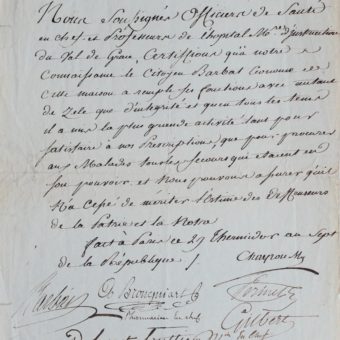 Nous Soussignés Officiers de Santé
en chef et Professeurs de l'hopital Mre d'instruction
du Val de Grace, Certifions qu'à notre
Connaissance le Citoyen Barbat Econome de
Cette maison a remple ses fonctions avec autant
de Zele que d'integrité et qu'en tous les tems
il a mis la plus grande activité tant pour
satisfaire à nos Prescriptions, que pour procurer
aux Malades tous les secours qui etaient en
son pouvoir, et Nous pouvons assurer qu'il
N'a cessé de mériter l'estime des Defenseurs
de la Patrie et la Notre
fait à Paris ce 29 Thermidor an Sept
de la République /
Barbier
Brongniart
Pharmacien en chef
Gilbert
Mn en chef